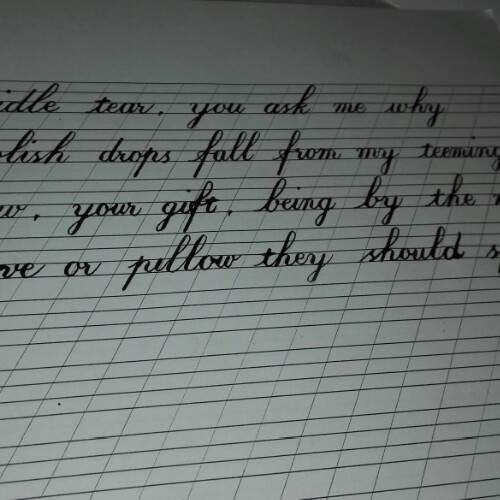 idle tear, you ask me why
lish drops fall from my teeming
your gift, being by the
or pillow they should